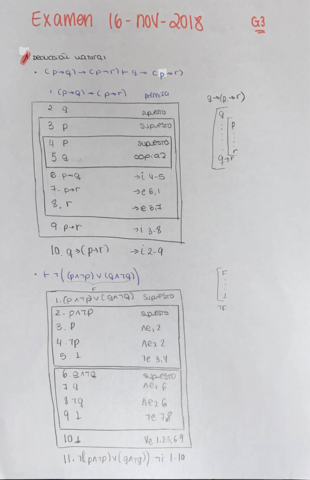 Examen 16-nov-2018 G3
Deducción natural
• (p→q)→(p→r) ⊢ q→(p→r)
1. (p→q)→(p→r) premisa
q→(p→r)
2 q supuesto
3 p supuesto
4 p supuesto
5 q copia 2
6 p→q →i 4-5
7. p→r →e 6,1
8. r →e 3,7
9 p→r →i 3-8
10. q→(p→r) →i 2-9
q
p
r
q→r
• ⊢ ¬((p∧¬p)∨(q∧¬q))
r
1. (p∧¬p)∨(q∧¬q) supuesto
2. p∧¬p supuesto
3. p ∧e₁ 2
4. ¬p ∧e₂ 2
5 ⊥ ¬e 3,4
6. q∧¬q supuesto
7 q ∧e₁ 6
8 ¬q ∧e₂ 6
9 ⊥ ¬e 7,8
10 ⊥
11. ¬((p∧¬p)∨(q∧¬q)) ¬i 1-10
r
⊥
¬r